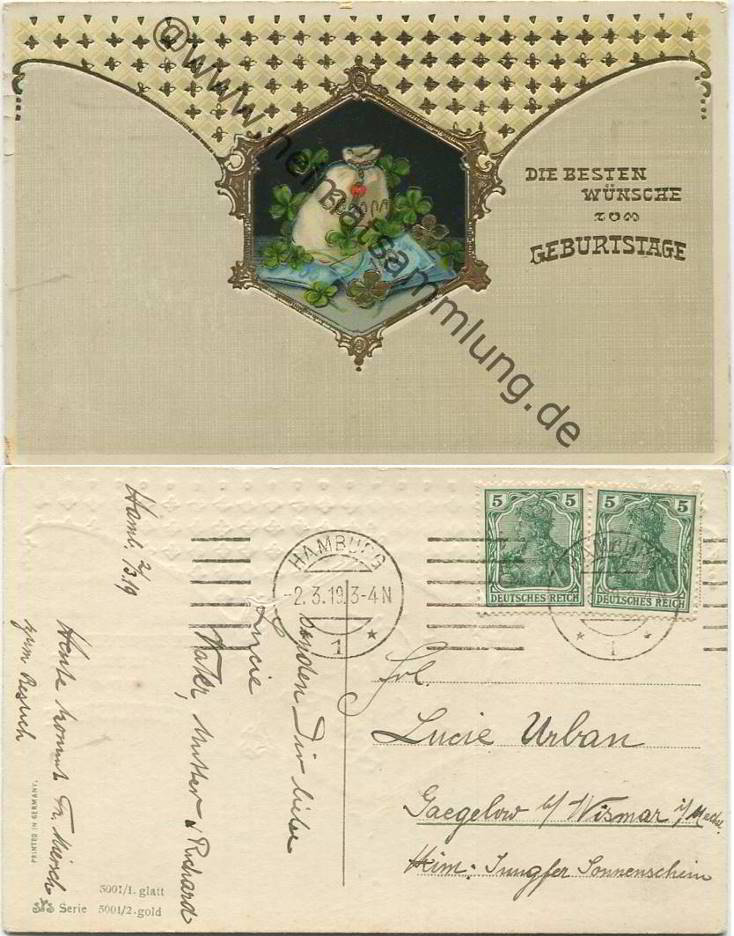 DIE BESTEN
WÜNSCHE
ZUM
GEBURTSTAGE
@www.heimatsammlung.de
Hamb. 2/3.19
senden Dir liebe
Lucie
Vater, Mutter u Richard
Heute kommt Fr.
zum Besuch
HAMBURG
-2.3.19.3-4N
* 1 *
5 5
DEUTSCHES REICH
5 5
DEUTSCHES REICH
HAMBURG
* 1 *
Frl.
Lucie Urban
Gaegelow b/ Wismar i/
Jungfer Sonnenschein
PRINTED IN GERMANY.
5001/1. glatt
Serie 5001/2.gold